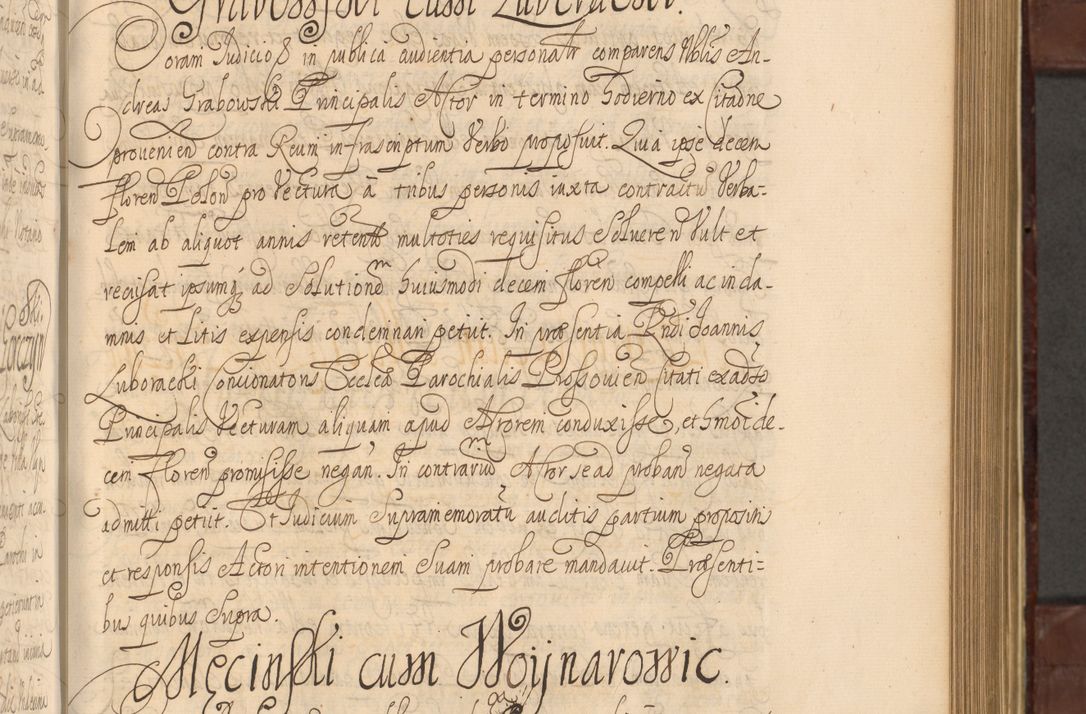 Grabowski cum Luboracski.
Coram Judicio & in publica audientia personalr comparens Nblis An-
dreas Grabowski Principalis Actor in termino hodierno ex Citaõne
provenien contra Reum infrascriptum Verbo proposuit. Quia ipse decem
floren Polon pro Vectura ã tribus personis iuxta contractu Verba-
lem ab aliquot annis retent multoties requisitus Solvere n Vult et
recusat ipsumq ad Solutionem huiusmodi decem floren compelli ac in da-
mnis et Litis expensis condemnari petiit. In præsentia Rndi Joannis
Luboracski Concionatoris Eccleã Parochialis Prossovien Citati ex adto
Principalis Vecturam aliquam apud Actorem conduxisse, et hmoi de-
cem floren promisisse negan. In contrarium Actor se ad proban negata
admitti petiit. Et Judicium Supramemoratũ auditis partium propositis
et responsis Actori intentionem Suam probare mandavit. Præsenti=
bus quibus Supra.
Męcinski cum Woijnarowic.